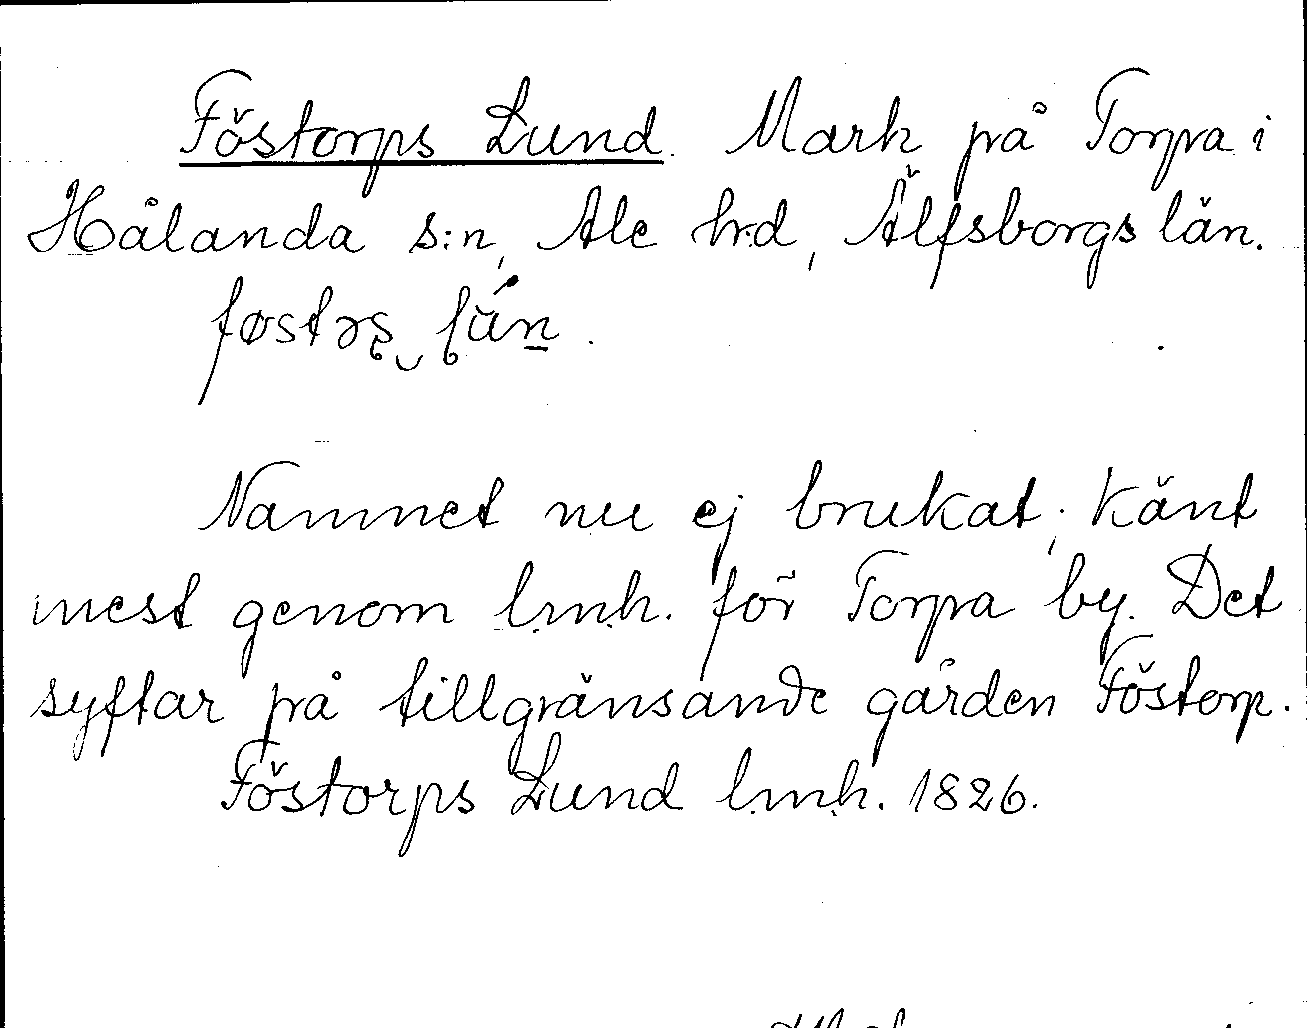 Föstorps Lund. Mark på Torpa i
Hålanda s:n, Ale h:d, Älfsborgs län.
føstəs
Namnet nu ej brukat; känt
mest genom l.m.h. för Torpa by. Det
syftar på tillgränsande gården Föstorp.
Föstorps Lund l.m.h. 1826.